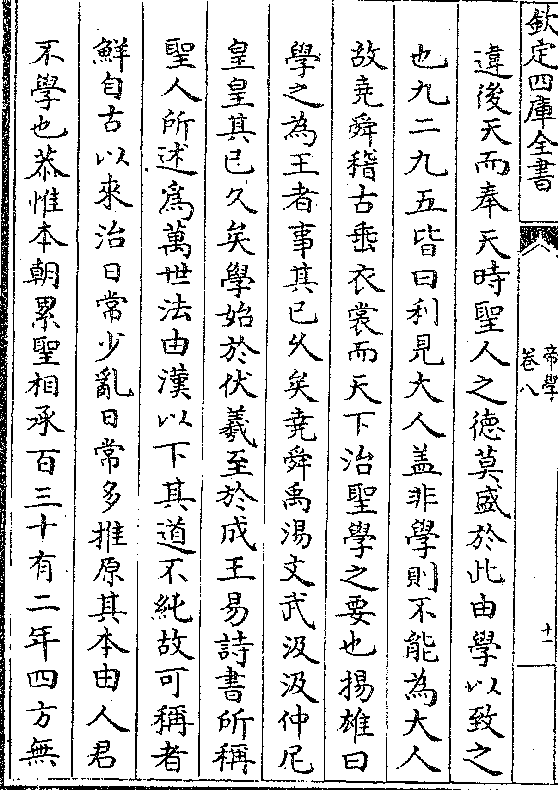 欽定四庫全書
帝學
卷八
十一
違後天而奉天時聖人之德莫盛於此由學以致之
也九二九五皆曰利見大人蓋非學則不能為大人
故堯舜稽古垂衣裳而天下治聖學之要也揚雄曰
學之為王者事其已久矣堯舜禹湯文武汲汲仲尼
皇皇其已久矣學始於伏羲至於成王易詩書所稱
聖人所述為萬世法由漢以下其道不純故可稱者
鮮自古以來治日常少亂日常多推原其本由人君
不學也恭惟本朝累聖相承百三十有二年四方無